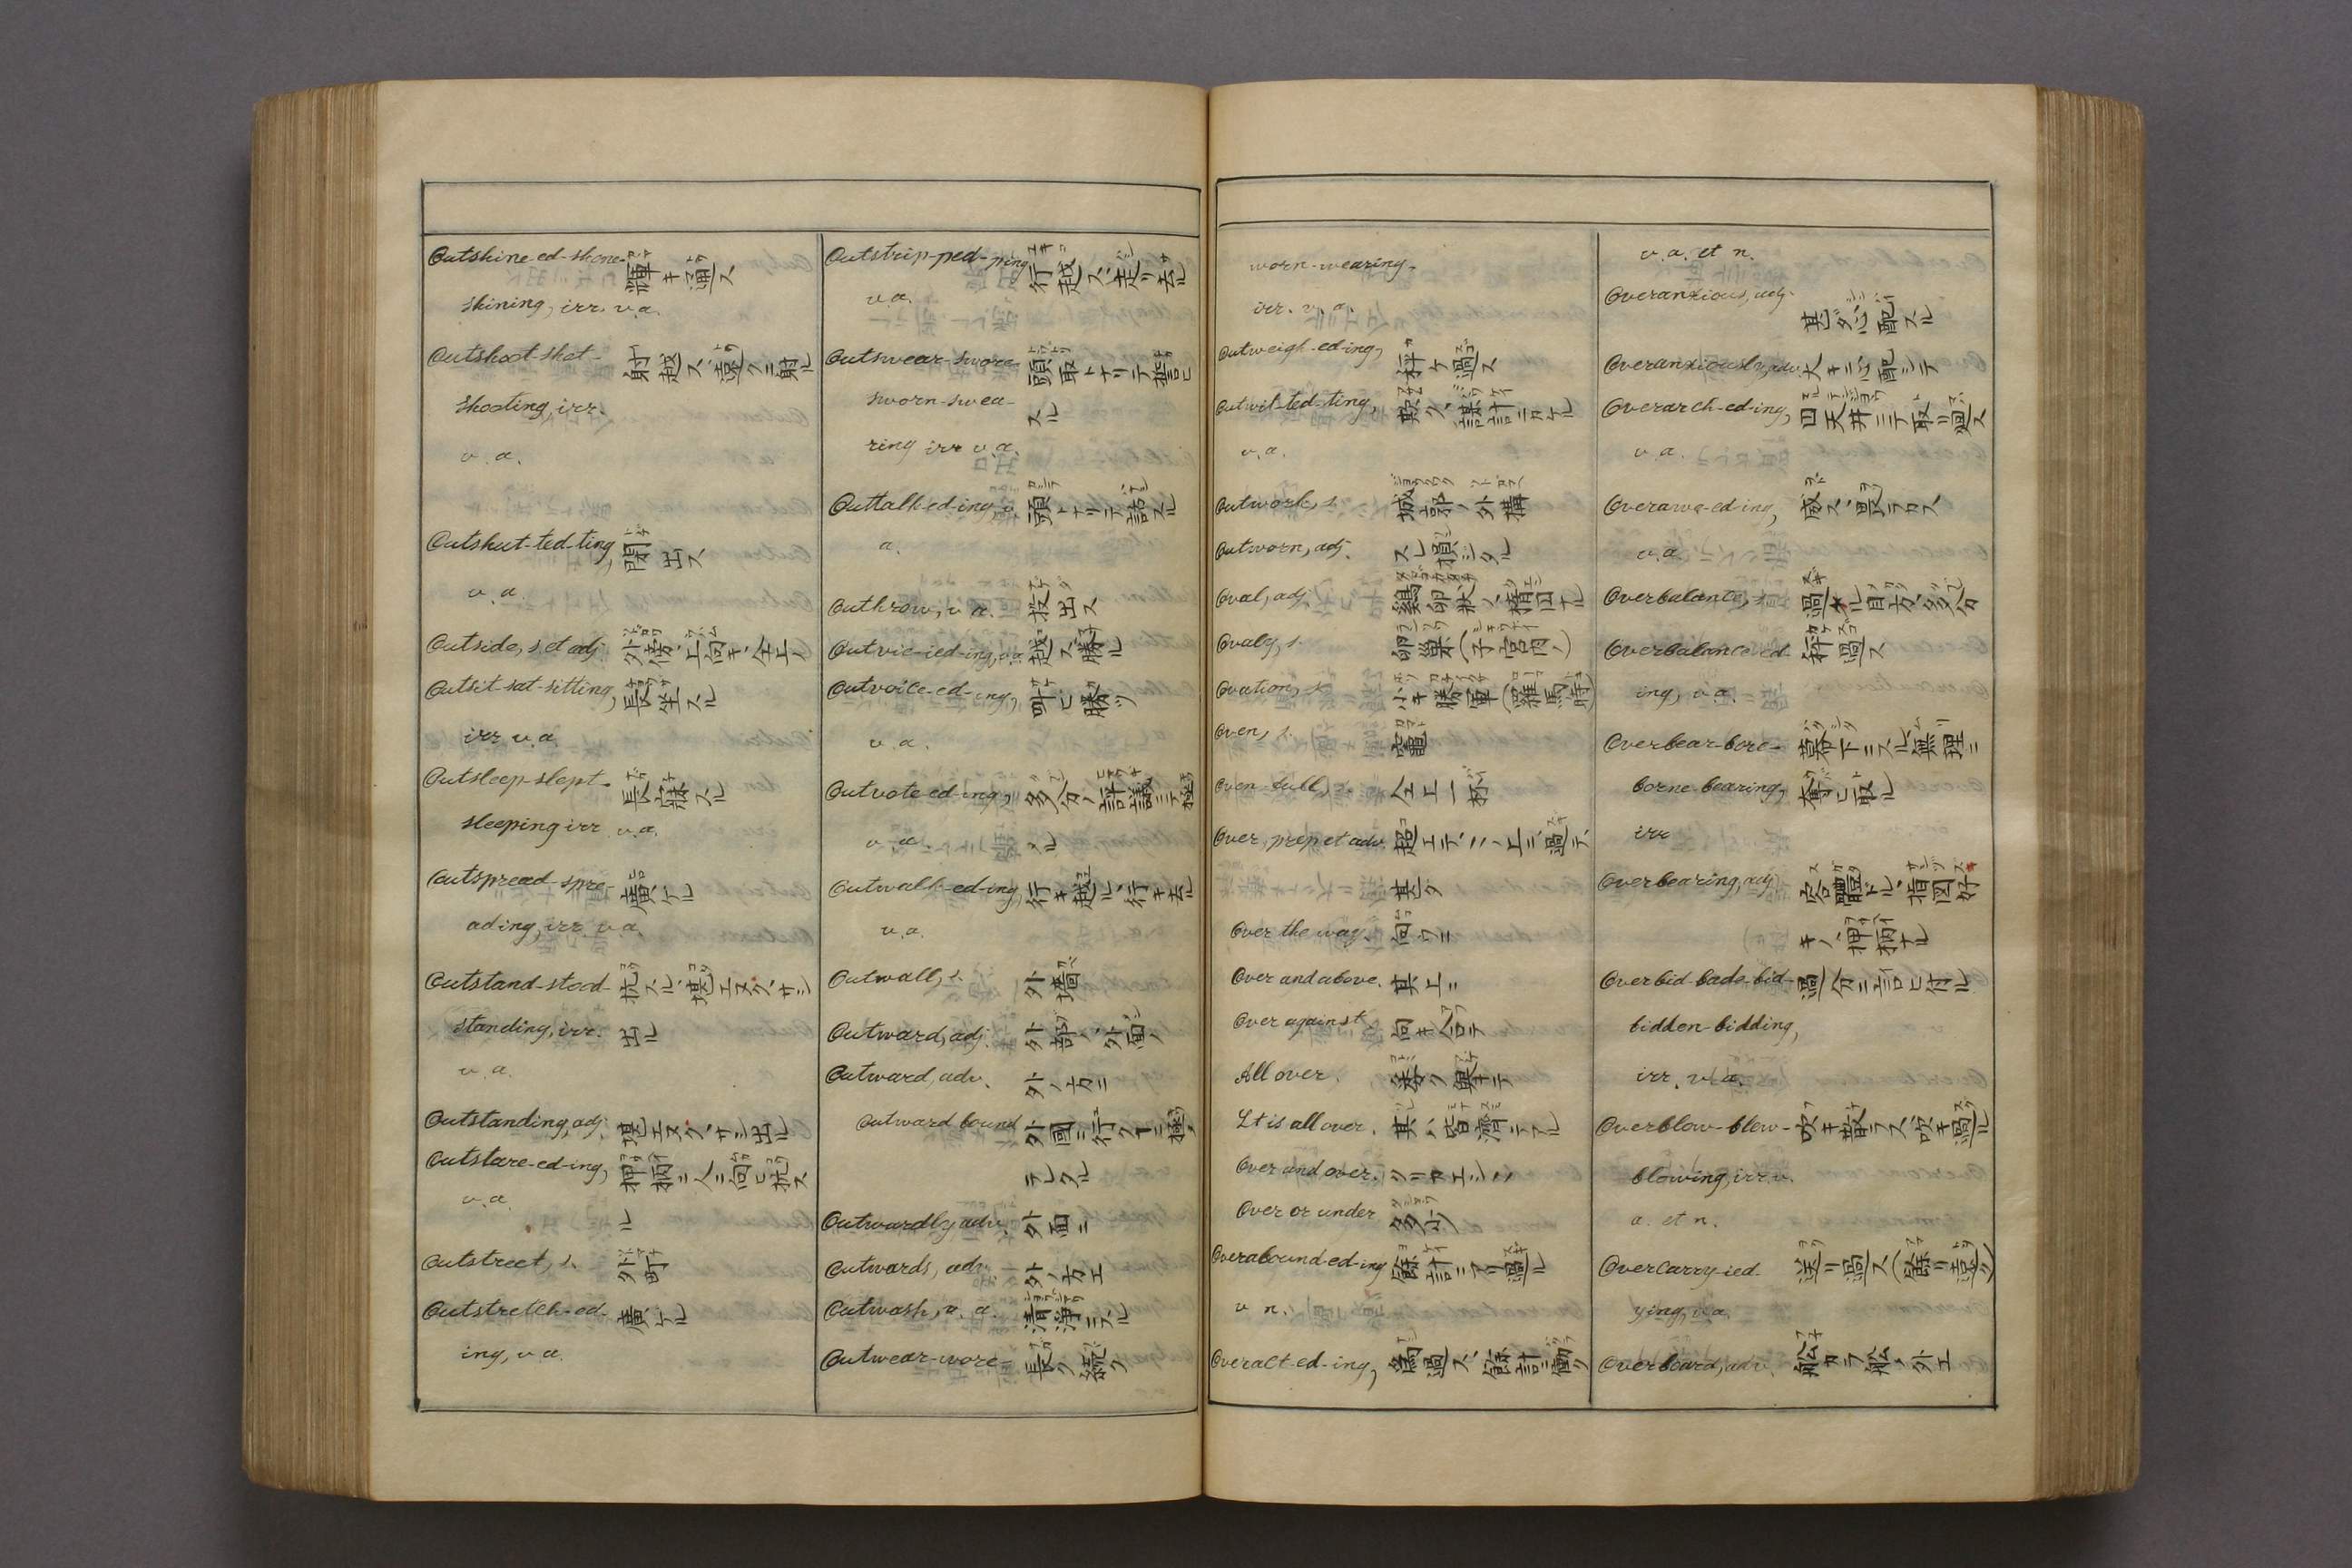 Outshine-ed-shone- 輝キ過ス
shining, irr. v.a.
Outshoot-shot- 射越ス、遠クニ射ル
shooting, irr.
v. a.
Outshut-ted-ting, 閉出ス
v. a.
Outside, s. et adj. 外傍、上向キ、仝上ノ
Outsit-sat-sitting, 長坐スル
irr v.a.
Outsleep-slept- 長寐スル
sleeping irr v.a.
Outspread-spre- 廣ケル
ading, irr. v.a.
Outstand-stood- 抗スル、堪エヌク、サシ
standing, irr. 出ル
v. a.
Outstanding, adj. 堪エヌク、サシ出ル
Outstare-ed-ing, 押柄ニ人ニ向ヒ抗ス
v. a. ル
Outstreet, s. 外町
Outstretch-ed- 廣ケル
ing, v.a.
Outstrip-ped-ping 行越ス、走リ去ル
v.a.
Outswear-swore- 頭取トナリテ誓ヒ
sworn-swea- スル
ring irr v.a.
Outtalk-ed-ing, v. 頭トナリテ話スル
a.
Outhrow, v. a. 投出ス
Outvie-ied-ing, v.a. 越ス、勝ル
Outvoice-ed-ing, 叫ヒ勝ツ
v. a.
Outvote-ed-ing, 多分ノ評議ニテ極
v. a. ル
Outwalk-ed-ing, 行キ越ル、行キ去ル
v.a.
Outwall, s. 外墻
Outward, adj. 外部ノ、外面ノ
Outward, adv. 外ノ方ニ
Outward bound 外國ニ行クイニ極メ
ラレタル
Outwardly, adv. 外面ニ
Outwards, adv. 外ノ方エ
Outwash, v. a. 清淨ニスル
Outwear-wore- 長ク続ク
worn-wearing-
irr. v. a.
Outweigh-ed-ing, 秤ケ過ス
Outwit-ted-ting, 欺ク、謀計ニカケル
v.a.
Outwork, s. 城部ノ外構
Outworn, adj. スレ損シタル
Oval, adj. 鷄卵状ノ、楕円ナル
Ovaly, s. 卵巢(子宮内ノ)
Ovation, s. 小キ勝軍(羅馬時)
Oven, s. 竈
Oven-full, s. 仝上一杯
Over, prep et adv. 超エテ、ニ、ノ上ニ、過テ、
甚タ
Over the way. 向ウニ
Over and above. 其上ニ
Over against. 向キ合テ
All over. 悉ク、畢テ
It is all over. 其ハ皆濟テアル
Over and over. クリカエシ
Over or under 多少
Overabound-ed-ing 餘計ニアリ過ル
v n.
Overact-ed-ing, 為過ス、餘計ニ働ク
v. a. et n.
Overanxious, adj. 甚ダ心配スル
Overanxiously, adv. 大キニ心配シテ
Overarch-ed-ing, 円天井ニテ取リ廻ス
v. a.
Overawe-ed-ing, 威ス、畏ラカス
v.a.
Overbalance, s. 過キル目方、多分
Overbalance-ed- 秤過ス
ing, v.a.
Overbear-bore- 幕下ニスル、無理ニ
borne-bearing, 奪ヒ取ル
irr
Overbearing, adj. 容體ドル、指図好
キノ、押柄ナル
Overbid-bade-bid- 過分ニ言ヒ付ル
bidden-bidding,
irr. v.a.
Overblow-blew- 吹キ散ラス、吹キ過ル
blowing, irr. v.
a. et n.
Overcarry-ied- 送リ過ス(餘リ遠ク)
ying, v.a.
Overboard, adv. 船カラ船ノ外エ